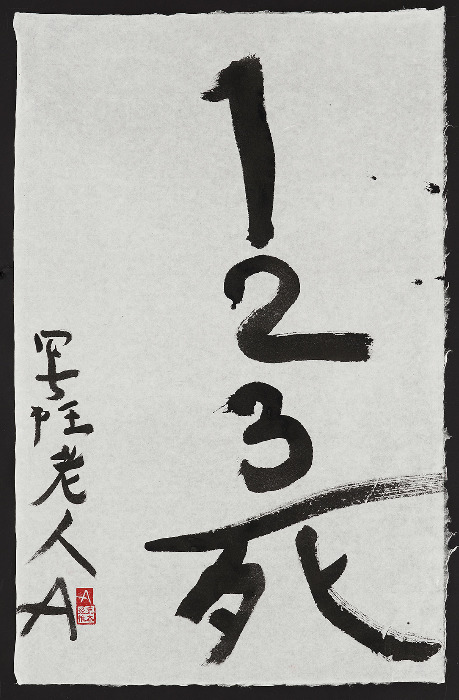 123死
写狂老人A
A